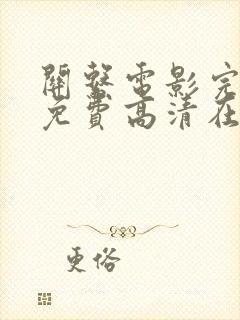 關繫電影完
免費高清在
更俗